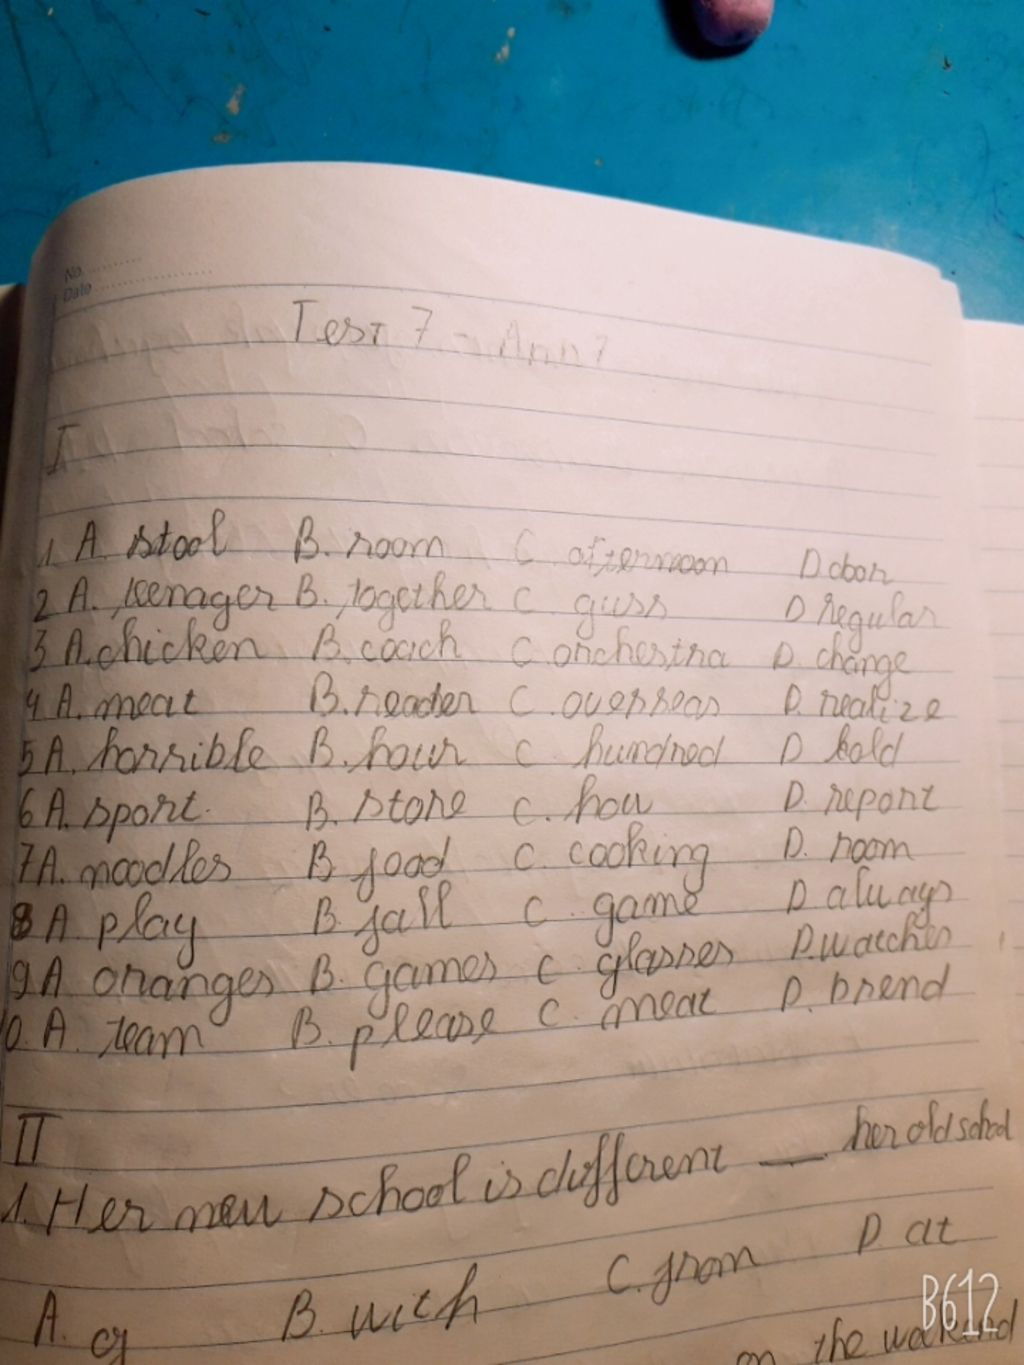 No
Date
Test 7 - Anh 7
I
1 A. stool B. room C. afternoon D. door
2 A. teenager B. together C. guss D. regular
3 A. chicken B. coach C. orchestra D. change
4 A. meat B. reader C. overseas D. realize
5 A. horrible B. hour C. hundred D. hold
6 A. sport. B. store C. how D. report
7 A. noodles B. food C. cooking D. room
8 A. play B. fall C. game D. always
9 A. oranges B. games C. glasses D. watches
0. A. team B. please C. meat D. brend
II
1. Her new school is different __ her old school
A. of B. with C. from D. at
on the weekend
B612